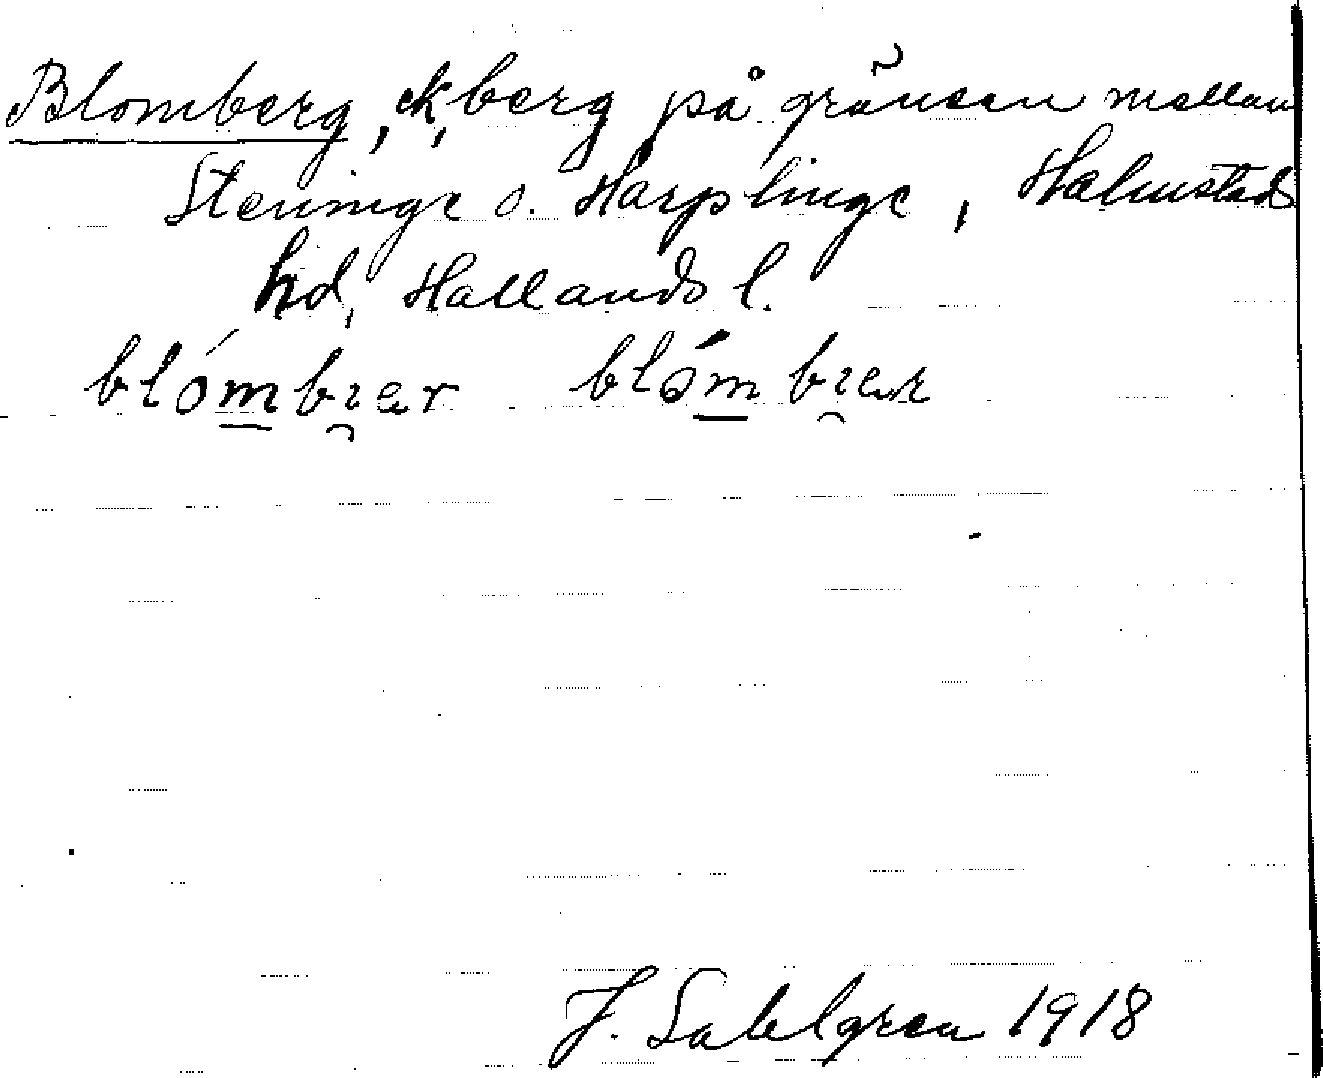 Blomberg, ek, berg på gränsen mellan
Steninge o. Harplinge, Halmstads
hd, Hallands l.
blómbɿær blómbɿæɾ
J. Sahlgren 1918